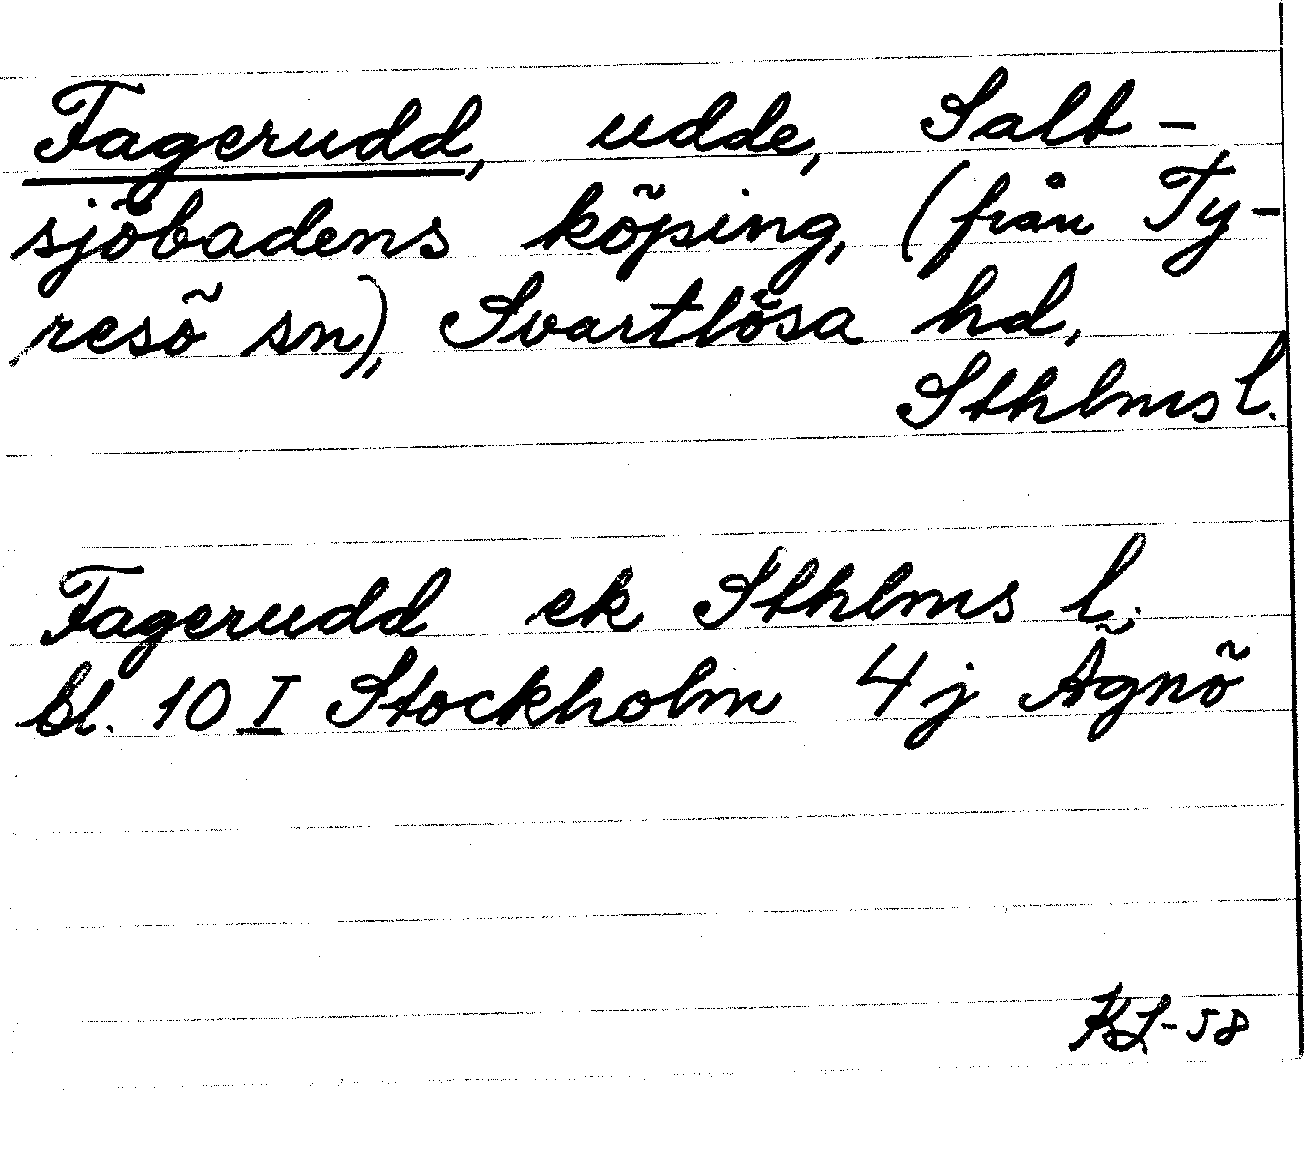 Fagerudd, udde, Salt-
sjöbadens köping, (från Ty-
resö sn), Svartlösa hd,
Sthlms l.
Fagerudd ek Sthlms l.
bl. 10 I Stockholm 4j Ägnö
KL-58